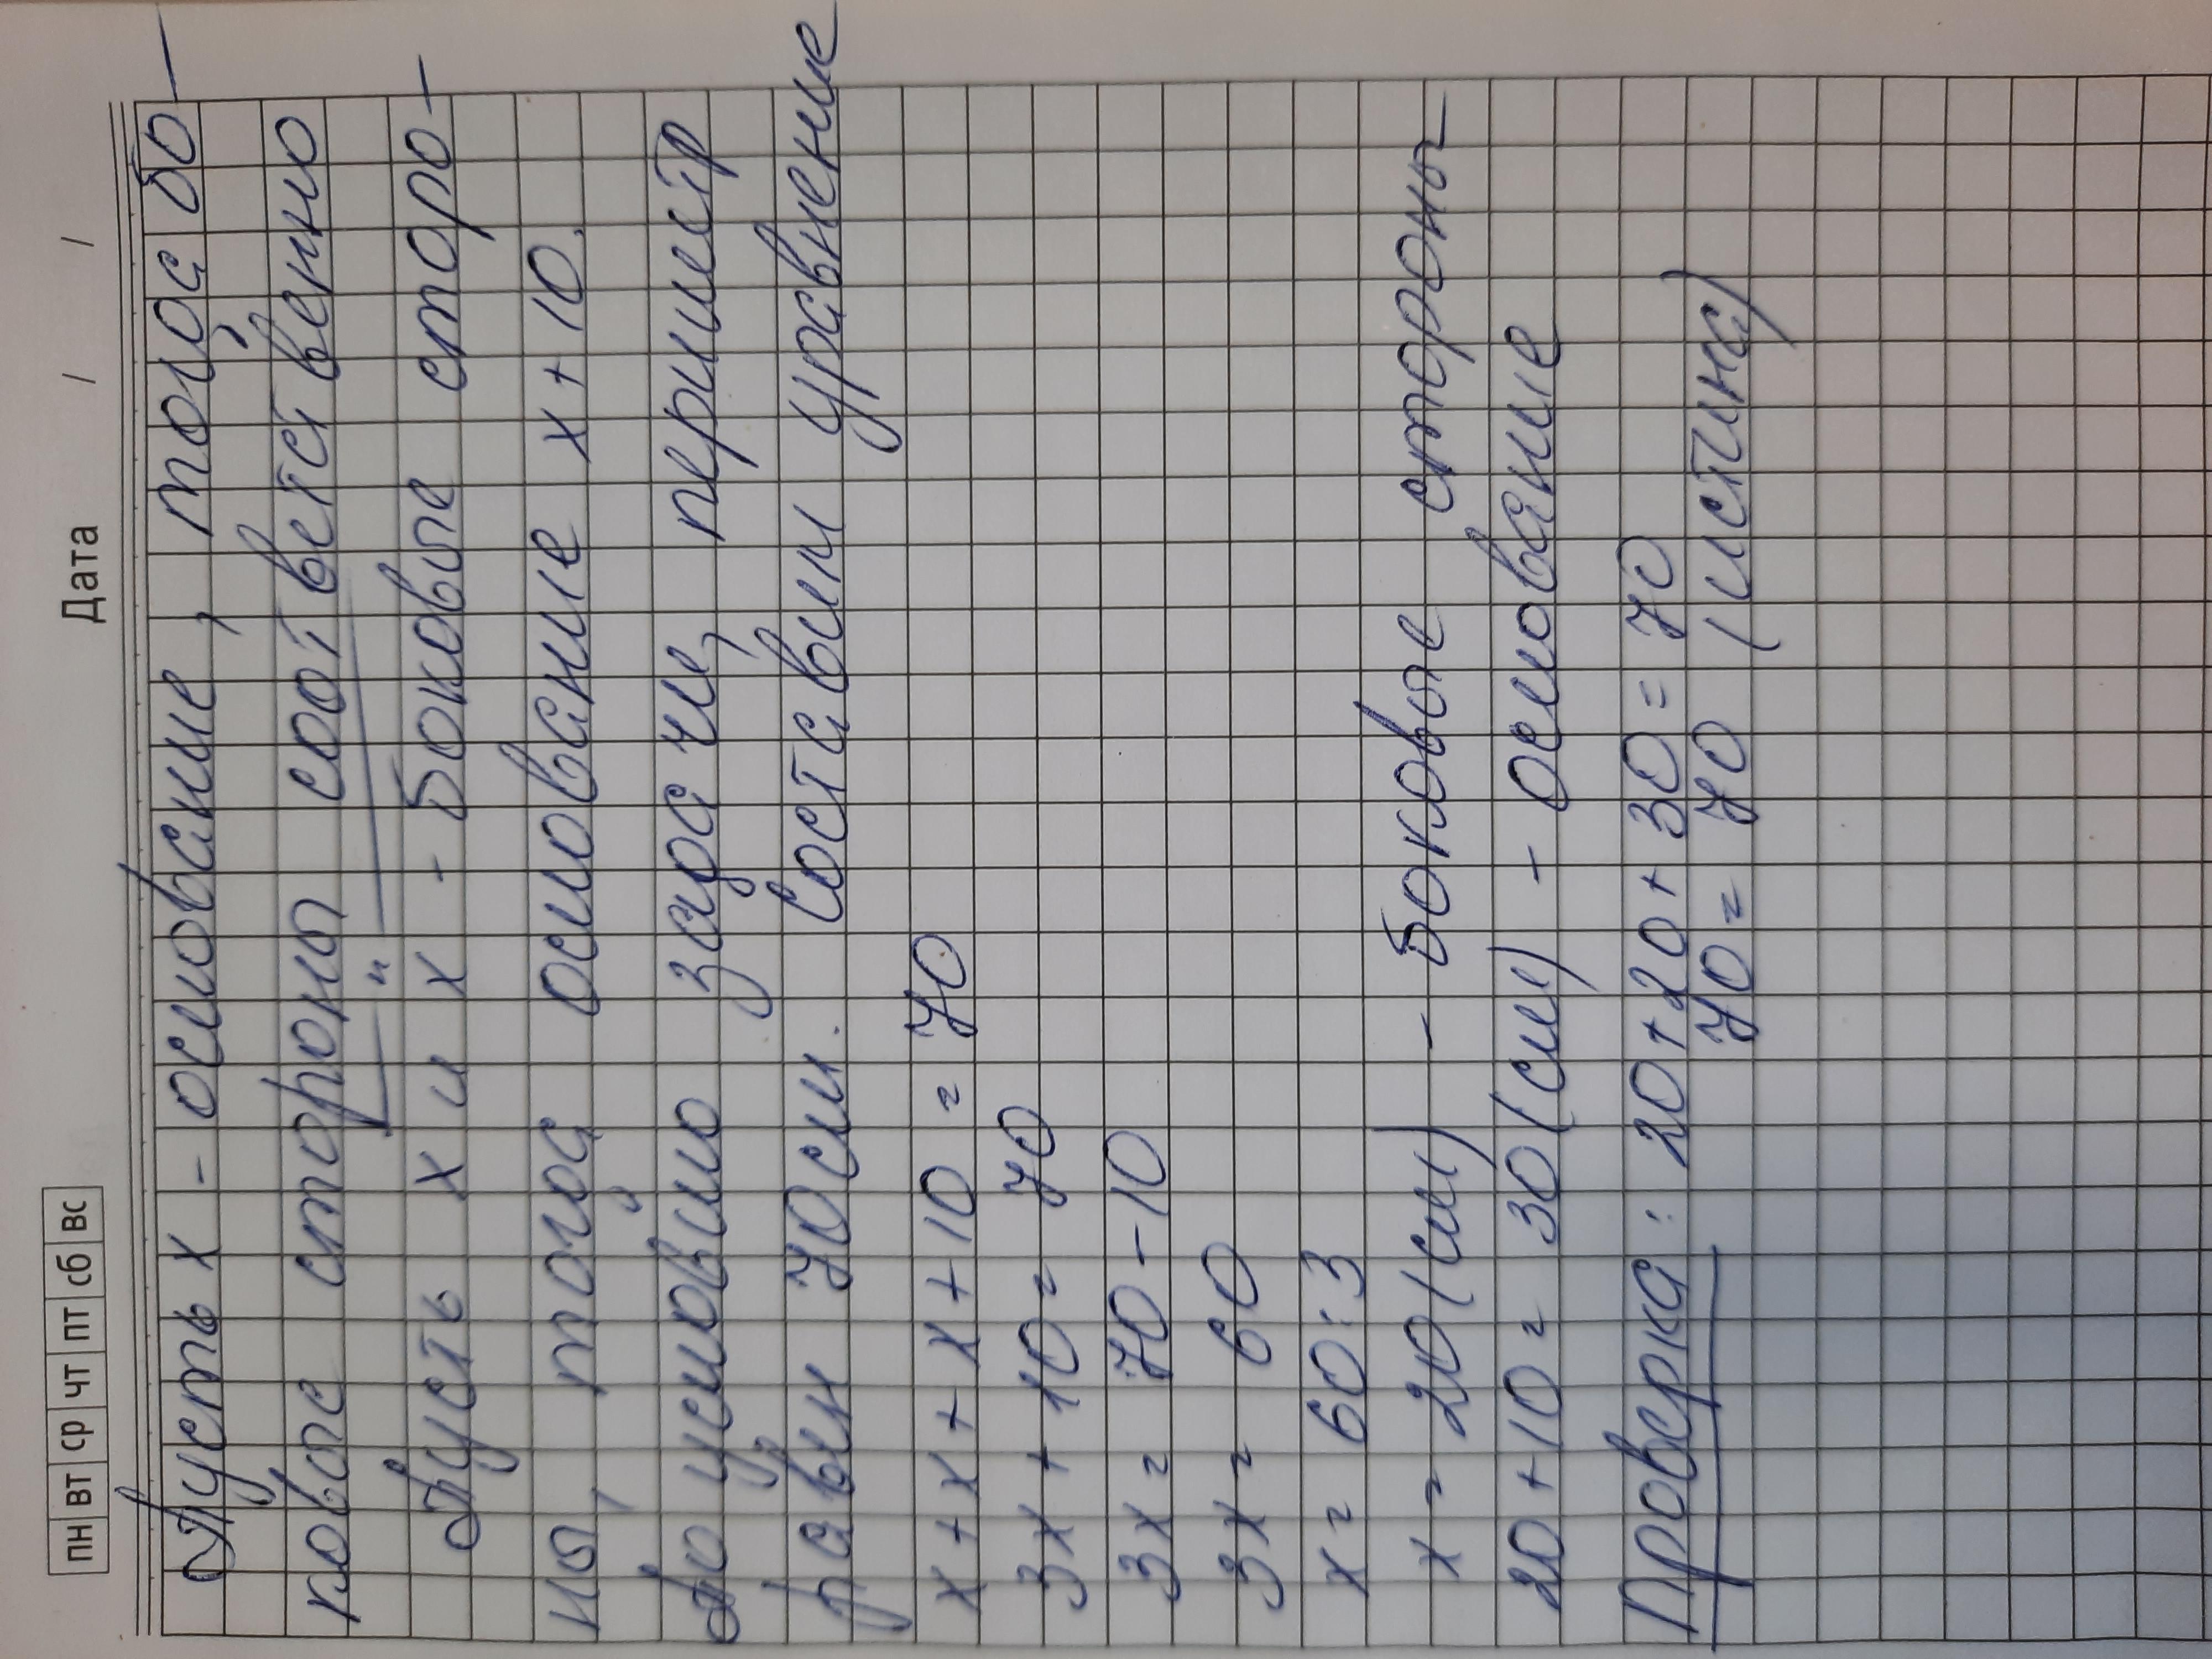 пн вт ср чт пт сб вс Дата / /
Пусть х - основание, тогда бо-
ковые стороны соответственно
"
Пусть х и х - боковые сторо-
ны, тогда основание х + 10.
По условию задачи, периметр
равен 70см. Составим уравнение
х + х + х + 10 = 70
3х + 10 = 70
3х = 70 - 10
3х = 60
х = 60 : 3
х = 20 (см) - боковые стороны
20 + 10 = 30 (см) - основание
Проверка: 20 + 20 + 30 = 70
70 = 70 (истина)